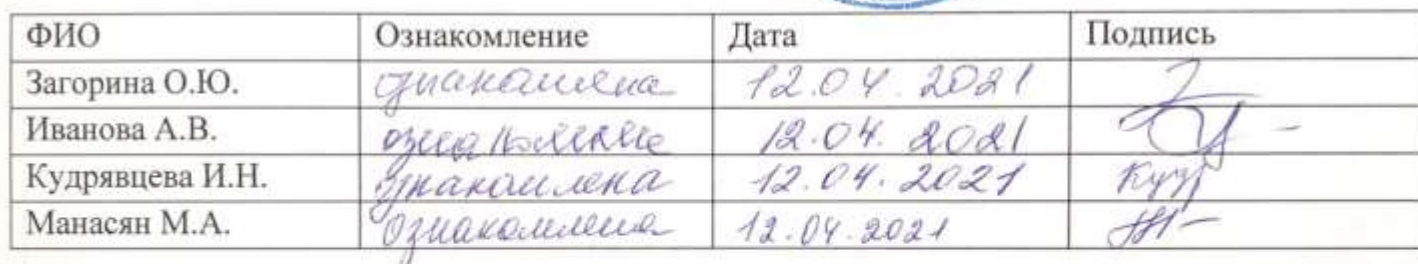 ФИО Ознакомление Дата Подпись
Загорина О.Ю. ознакомлена 12.04.2021
Иванова А.В. ознакомлена 12.04.2021
Кудрявцева И.Н. ознакомлена 12.04.2021
Манасян М.А. ознакомлена 12.04.2021